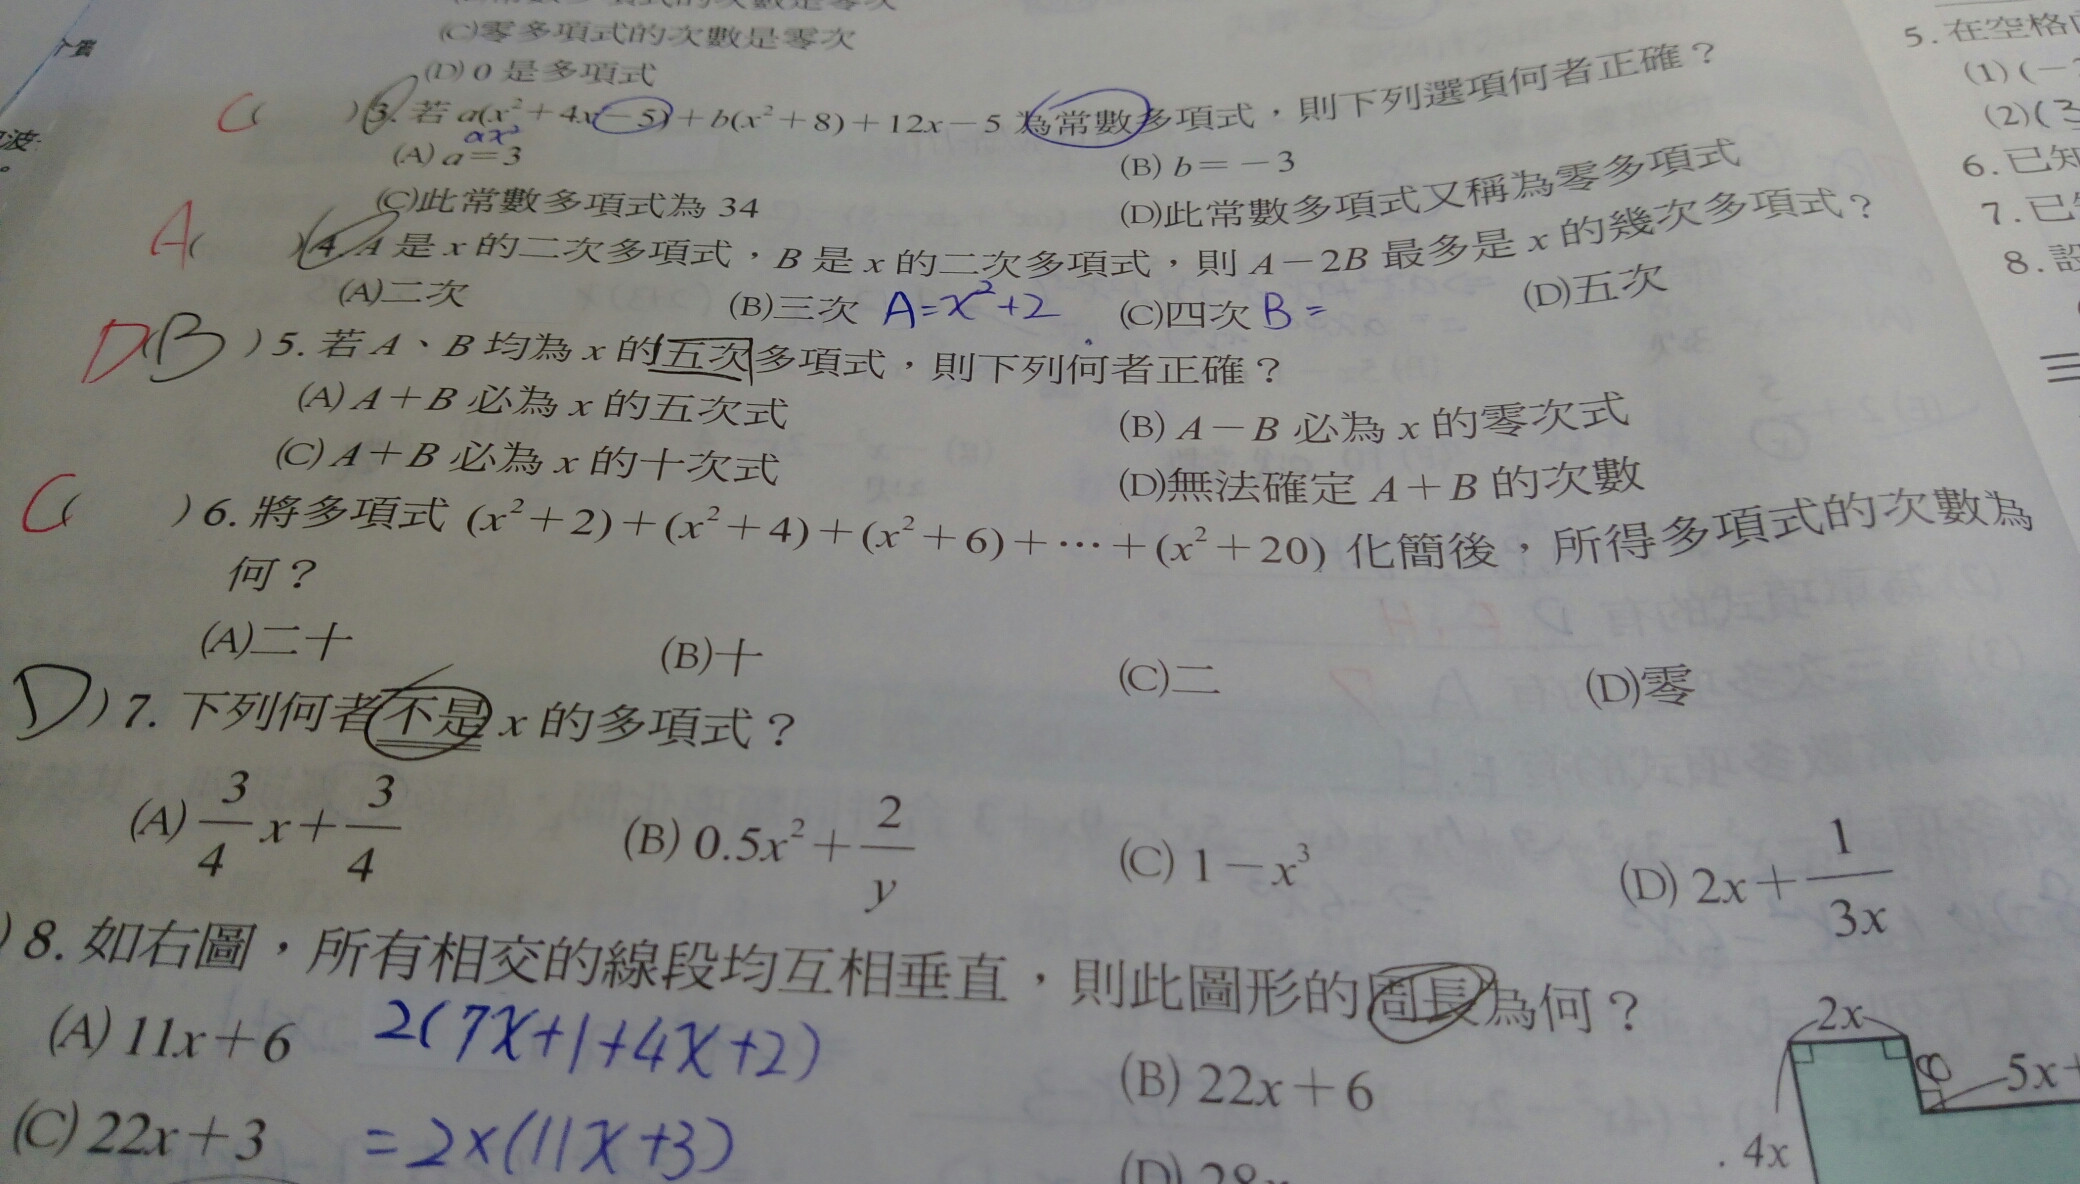 (C)零多項式的次數是零次
(D) 0 是多項式
C( ) 3. 若 a(x²+4x-5)+b(x²+8)+12x-5 為常數多項式，則下列選項何者正確？
ax²
(A) a=3 (B) b=-3
(C)此常數多項式為 34 (D)此常數多項式又稱為零多項式
A( ) 4. A 是 x 的二次多項式，B 是 x 的二次多項式，則 A-2B 最多是 x 的幾次多項式？
(A)二次 (B)三次 A=x²+2 (C)四次 B= (D)五次
D(B) 5. 若 A、B 均為 x 的五次多項式，則下列何者正確？
(A) A+B 必為 x 的五次式 (B) A-B 必為 x 的零次式
(C) A+B 必為 x 的十次式 (D)無法確定 A+B 的次數
C( ) 6. 將多項式 (x²+2)+(x²+4)+(x²+6)+⋯+(x²+20) 化簡後，所得多項式的次數為
何？
(A)二十 (B)十 (C)二 (D)零
D) 7. 下列何者不是 x 的多項式？
(A) 3/4 x+3/4 (B) 0.5x²+2/y (C) 1-x³ (D) 2x+1/3x
) 8. 如右圖，所有相交的線段均互相垂直，則此圖形的周長為何？
(A) 11x+6 2(7x+1+4x+2) (B) 22x+6
(C) 22x+3 =2×(11x+3) (D) 28x
2x
5x+
4x
5. 在空格
(1)(-
(2)(3
6. 已知
7. 已
8. 設